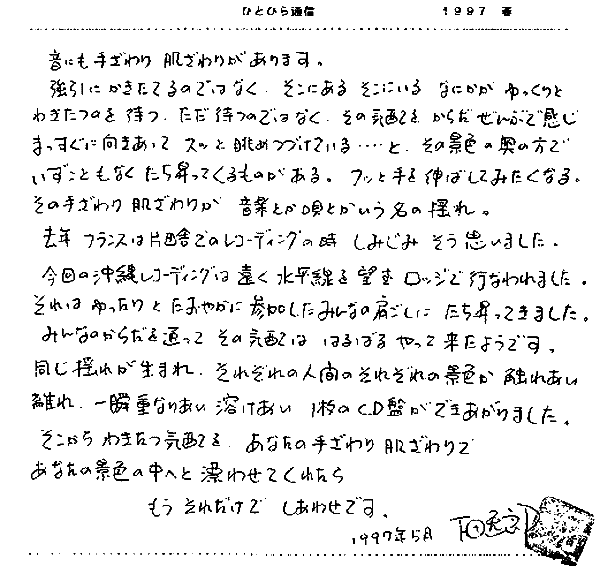 ひとひら通信 1997 春
音にも手ざわり 肌ざわりがあります。
強引にかきたてるのではなく、そこにある そこにいる なにかが ゆっくりと
わきたつのを 待つ、ただ 待つのではなく、その気配を からだ ぜんぶで感じ
まっすぐに向きあって スッと 眺めつづけている‥‥と、その景色の奥の方で
いずこともなく たち昇ってくるものがある。フッと手を伸ばしてみたくなる。
その手ざわり 肌ざわりが 音楽とか唄とかいう名の揺れ。
去年 フランスは片田舎でのレコーディングの時 しみじみ そう思いました。
今回の沖縄レコーディングは遠く水平線を望む ロッジで行なわれました。
それは ゆったりと たおやかに 参加したみんなの肩ごしに たち昇ってきました。
みんなのからだを通って その気配は はるばる やって来たようです。
同じ揺れが生まれ、それぞれの人間のそれぞれの景色が 触れあい
離れ、一瞬重なりあい 溶けあい 1枚のCD盤ができあがりました。
そこから わきたつ気配を、あなたの手ざわり 肌ざわりで
あなたの景色の中へと 漂わせてくれたら
もう それだけで しあわせです。
1997年5月